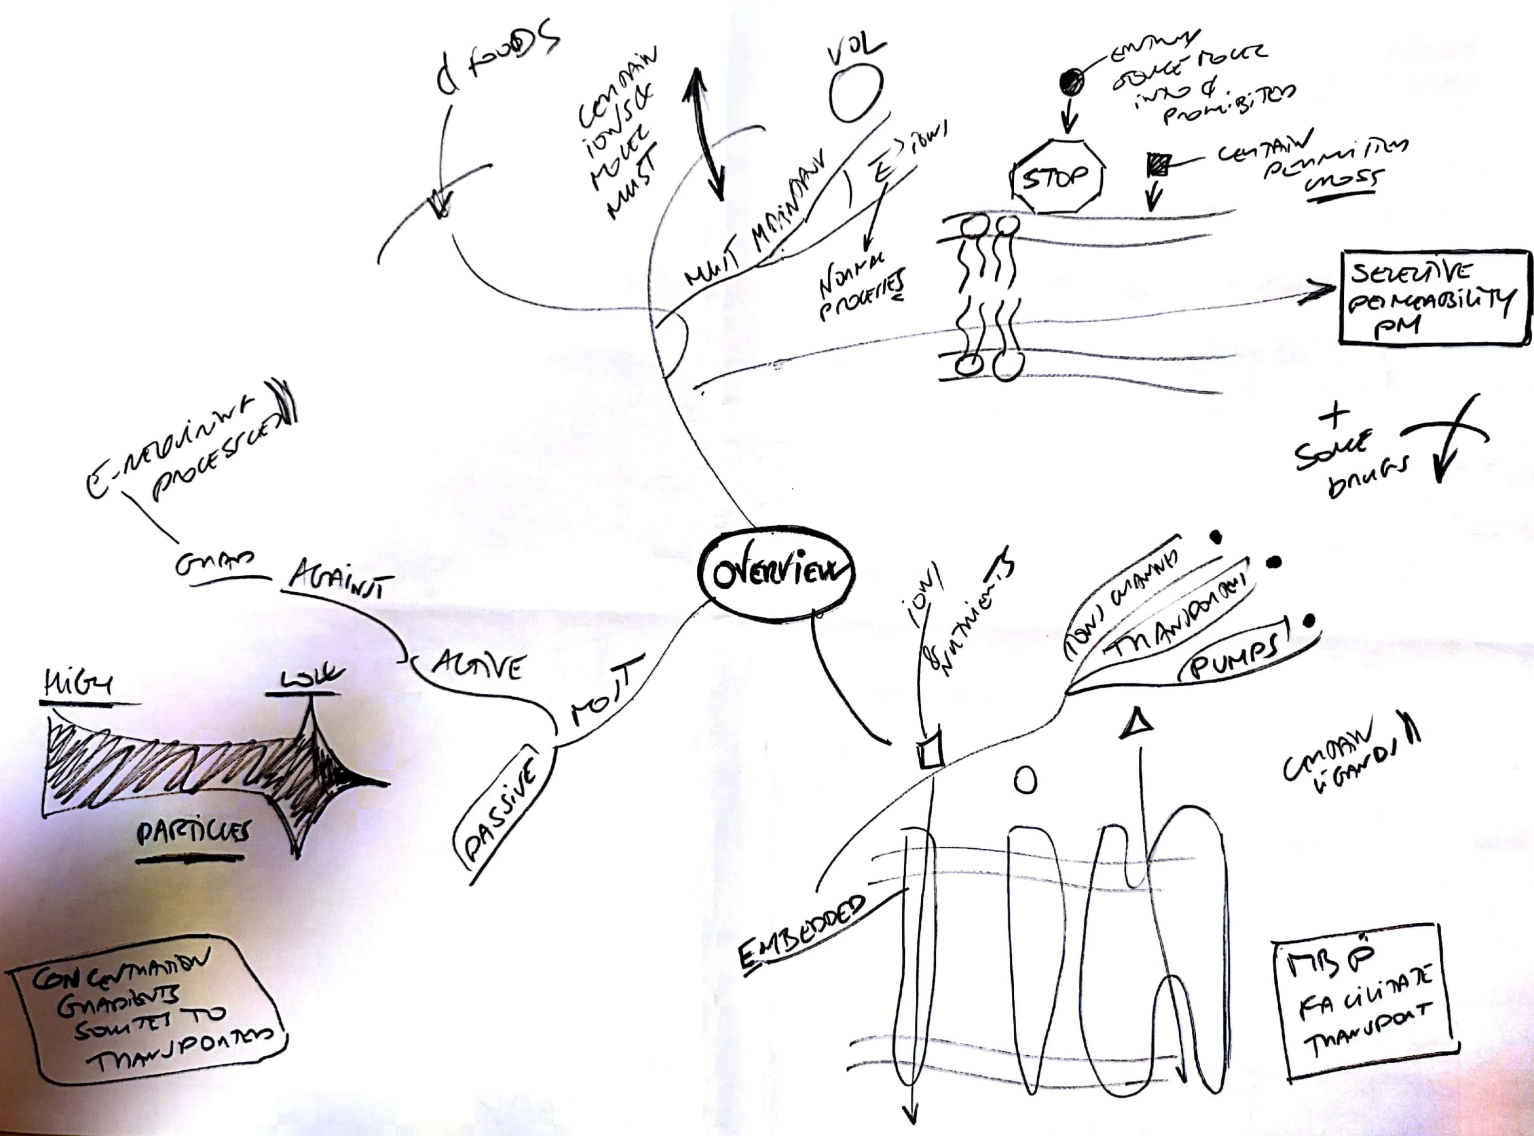 d FOODS
CERTAIN
IONS &
MOLEC
MUST
VOL
MUST MAINTAIN
E
IONS
NORMAL
PROCESSES
ENTRY
MOLEC
INTO
PROHIBITED
STOP
CERTAIN
PERMITTED
CROSS
SELECTIVE
PERMEABILITY
PM
+
SOME
DRUGS
E-REQUIRING
PROCESSES
GRAD
AGAINST
ACTIVE
MOST
PASSIVE
HIGH
LOW
PARTICLES
CONCENTRATION
GRADIENTS
SOLUTES TO
TRANSPORTED
OVERVIEW
IONS
& NUTRIENTS
IONS CHANNELS
TRANSPORTERS
PUMPS
CERTAIN
LIGANDS
EMBEDDED
MB P
FACILITATE
TRANSPORT